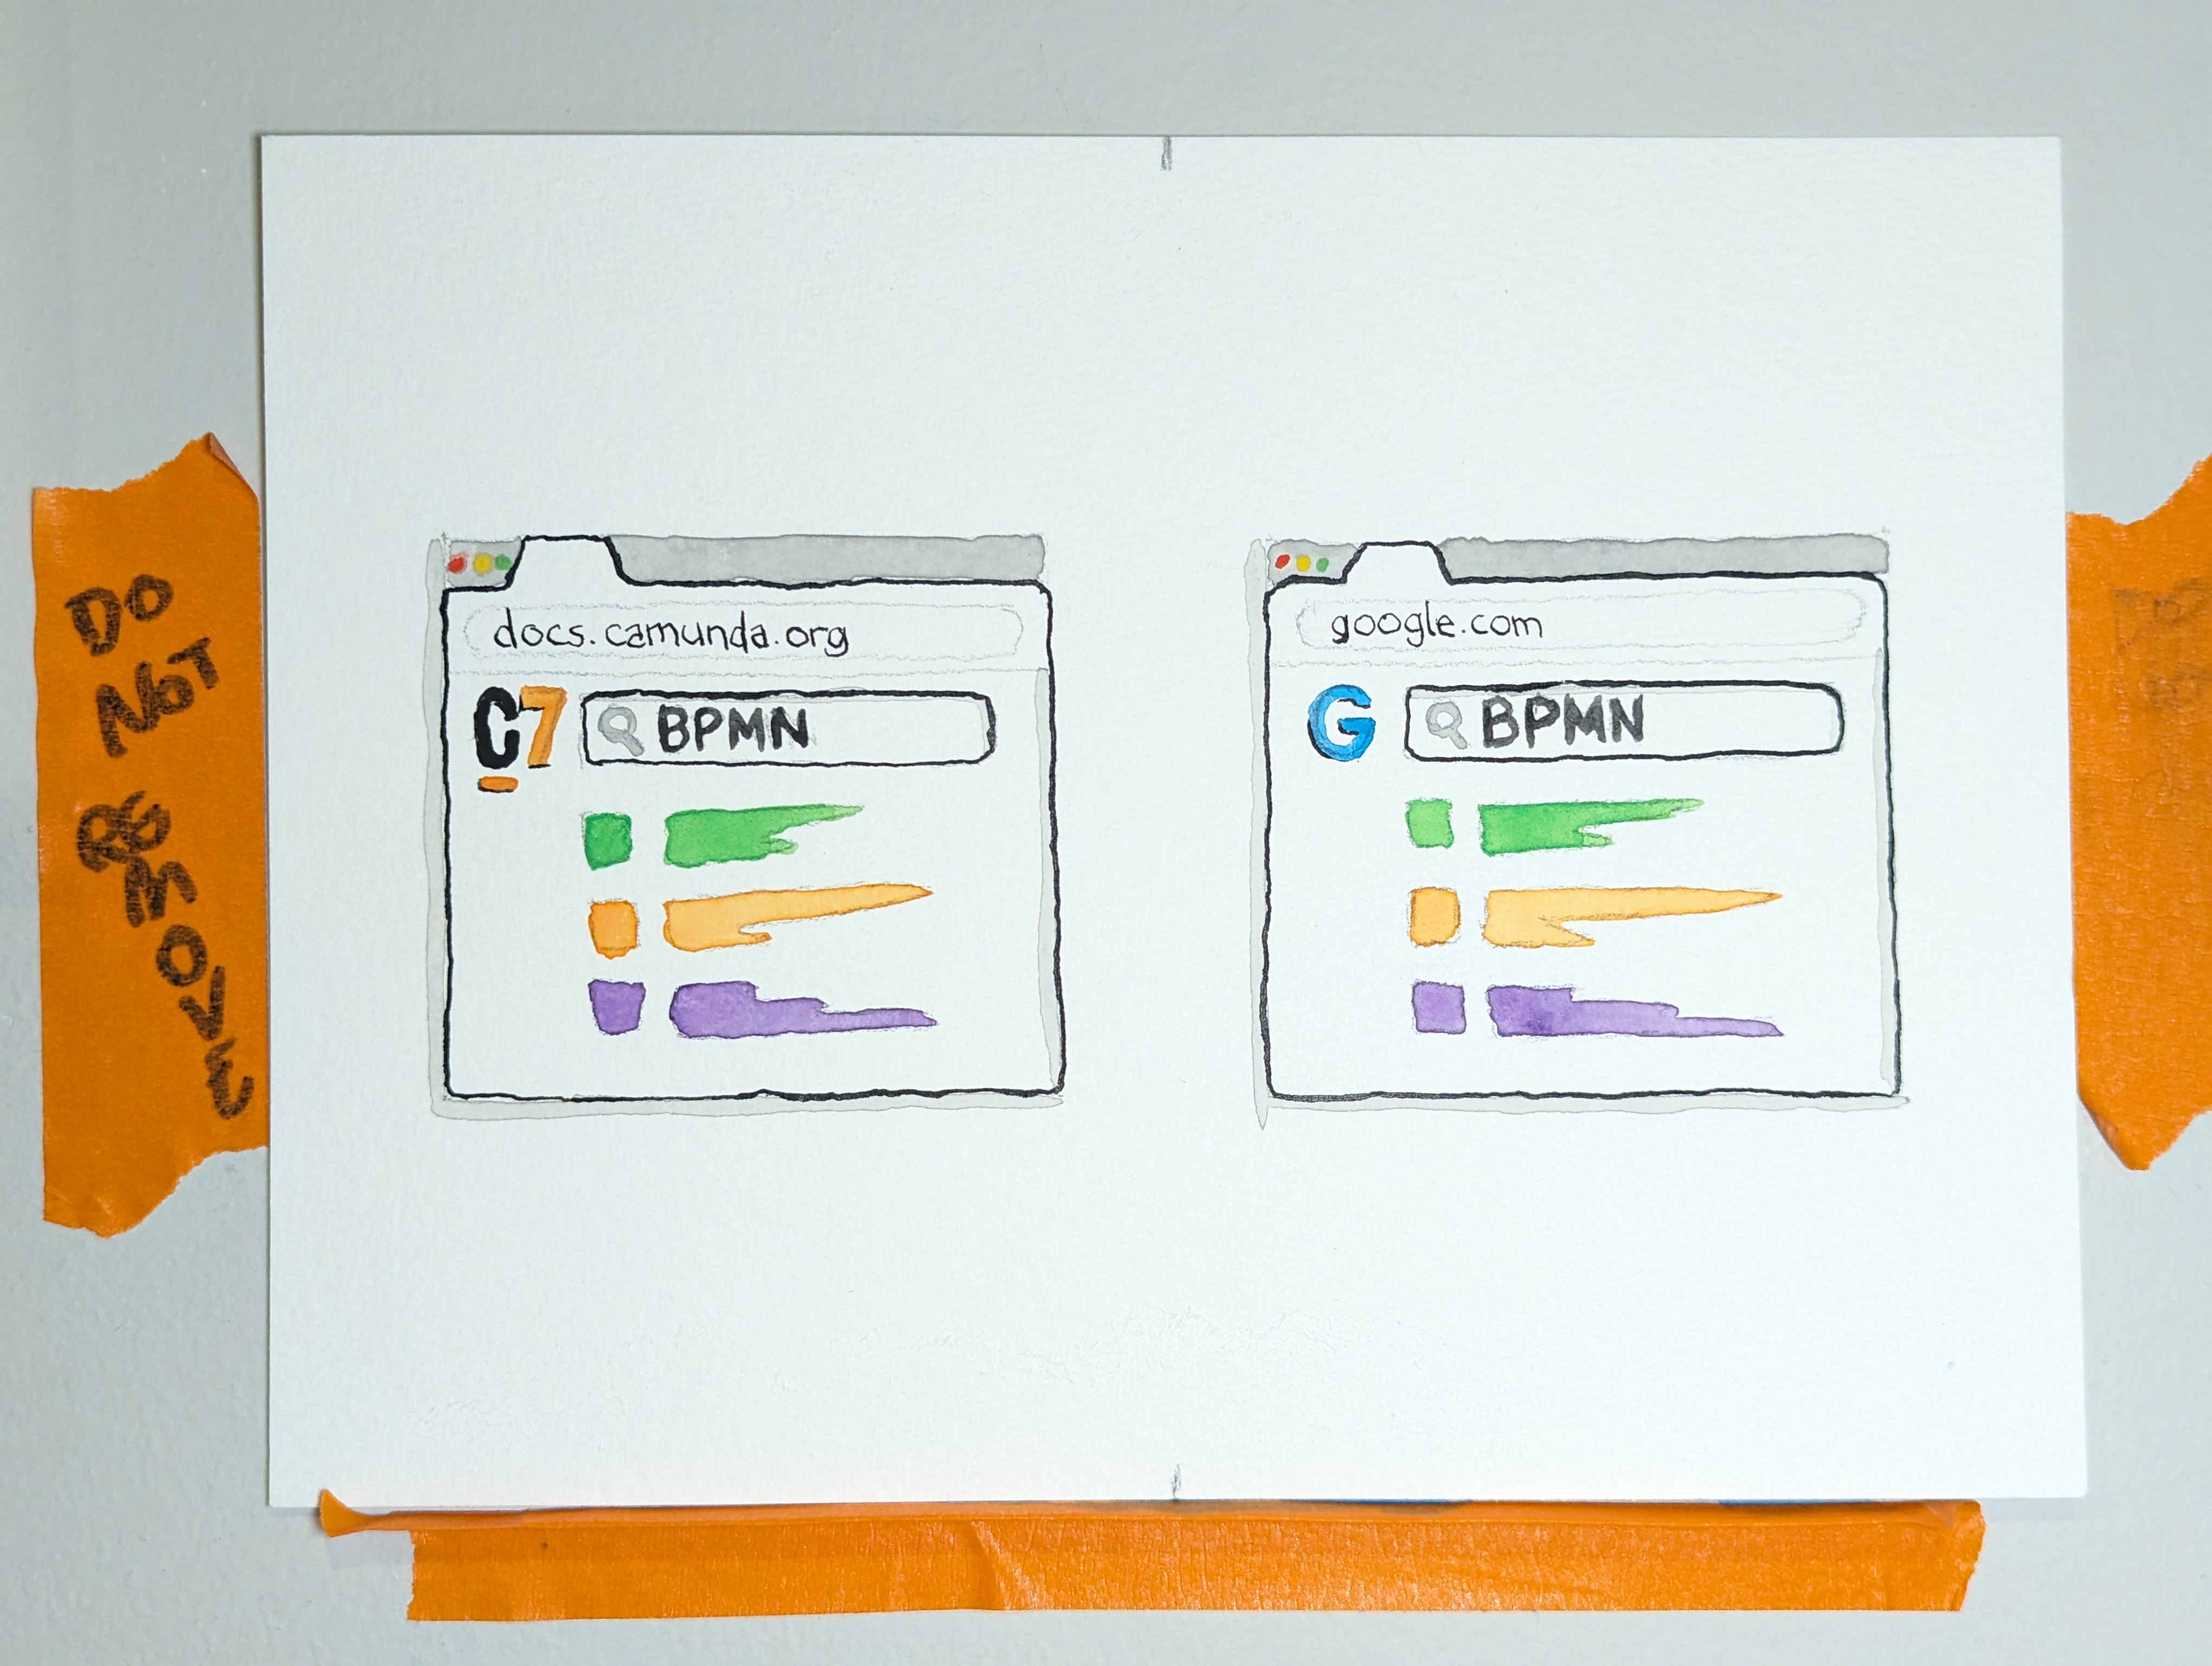 DO
NOT
RE
M
O
V
E
docs.camunda.org
C7
BPMN
google.com
G
BPMN